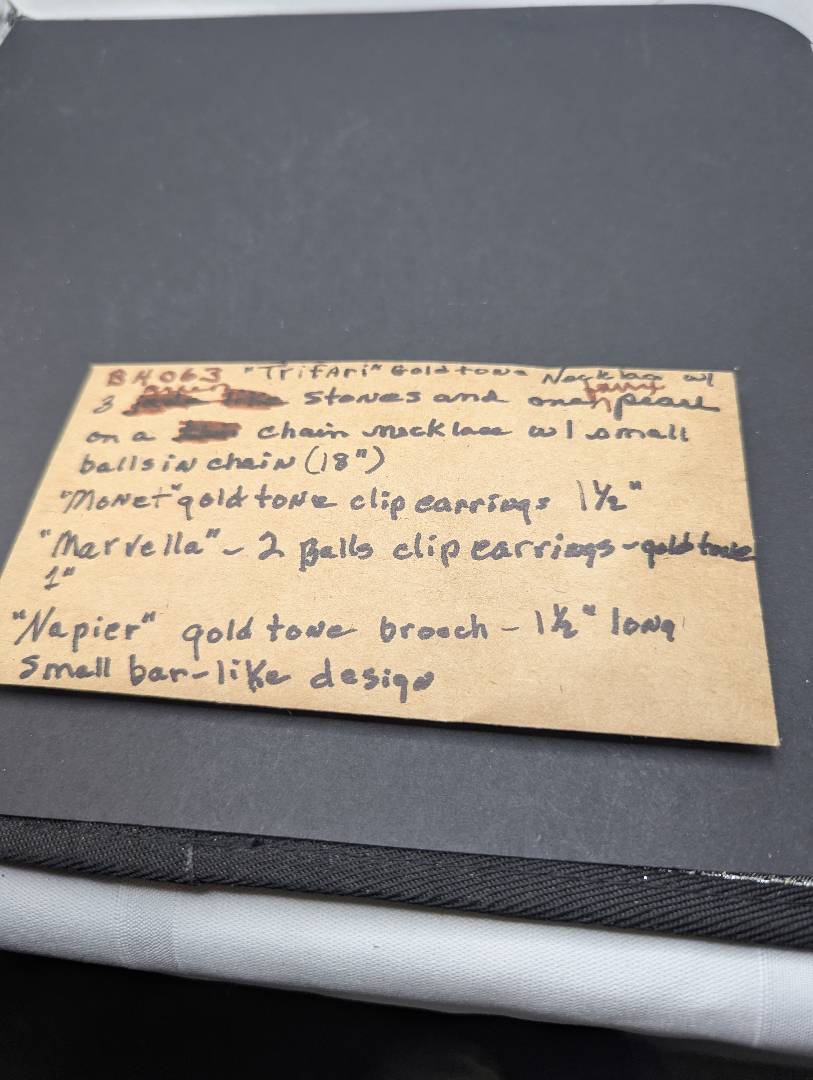 BH063 "Trifari" Goldtone Necklac w/
3 stones and one faux pearl
on a chain necklace w/ small
balls in chain (18")
"Monet" gold tone clip earrings 1½"
"Marvella" - 2 Balls clip earrings - gold tone
1"
"Napier" gold tone brooch - 1½" long
small bar-like design